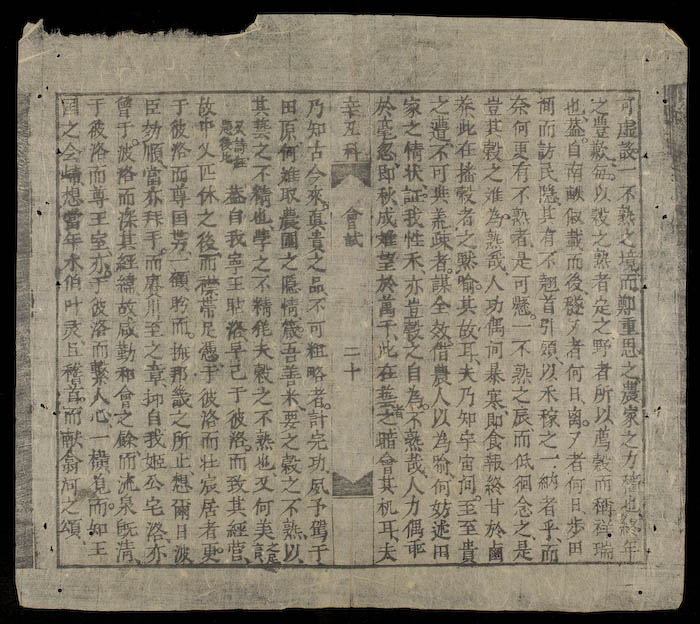 可虛設一不熟之境而鄭重思之農家之力穡也終年
之豐歉每以穀之熟者定之野者所以薦穀而稱祥瑞
也蓋自南畝俶載而後穟者何日離者何日步田
間而訪民隱其有不翹首引頸以禾稼之一納者乎而
奈何更有不熟者是可懸一不熟之辰而低徊念之是
豈其穀之难為熟哉人功偶间暴寒即食報終甘於鹵
莽此在播穀者之默喻其故耳夫乃知宇宙间至至貴
之遭不可與羗疎者謀全效借農人以為喻何妨述田
家之情状証我性禾亦豈穀之自為不熟哉人力偶乖
於忽即秋成难望於萬千此在者之暗會其机耳夫
辛丑科 會試 二十
乃知古今來真貴之品不可粗略者計完功夙予駕于
田原何难取農圃之隐情箴吾善米要之穀之不熟以
其藝之不精也學之不精能夫穀之不熟也又何美
故中父匹休之後而襟帶足憑于彼洛而壯宸居者更
于彼洛而尊国势一顧盼而撫邦畿之所止想爾日波
臣効順當亦拜于而賡川至之章抑自我姬公宅洛亦
曾于彼洛而深其經緯故咸勤和會之餘而流泉旣清
于彼洛而尊王室亦于彼洛而繫人心一橫覽而知王
国之会崎想當年水伯叶灵且稽首而献翕河之頌